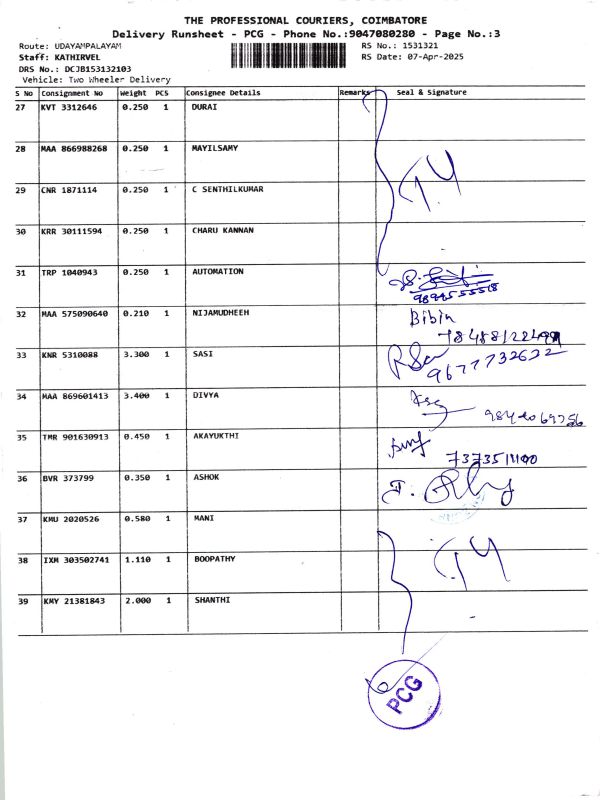 THE PROFESSIONAL COURIERS, COIMBATORE
Delivery Runsheet - PCG - Phone No.:9047080280 - Page No.:3
Route: UDAYAMPALAYAM RS No.: 1531321
Staff: KATHIRVEL RS Date: 07-Apr-2025
DRS No.: DCJB153132103
Vehicle: Two Wheeler Delivery
S No Consignment No Weight PCS Consignee Details Remarks Seal & Signature
27 KVT 3312646 0.250 1 DURAI
28 MAA 866988268 0.250 1 MAYILSAMY
29 CNR 1871114 0.250 1 C SENTHILKUMAR
30 KRR 30111594 0.250 1 CHARU KANNAN
31 TRP 1040943 0.250 1 AUTOMATION
32 MAA 575090640 0.210 1 NIJAMUDHEEH Bibin
33 KNR 5310088 3.300 1 SASI 9677732622
34 MAA 869601413 3.400 1 DIVYA
35 TMR 901630913 0.450 1 AKAYUKTHI
36 BVR 373799 0.350 1 ASHOK
37 KMU 2020526 0.580 1 MANI
38 IXM 303502741 1.110 1 BOOPATHY
39 KMY 21381843 2.000 1 SHANTHI
PCG